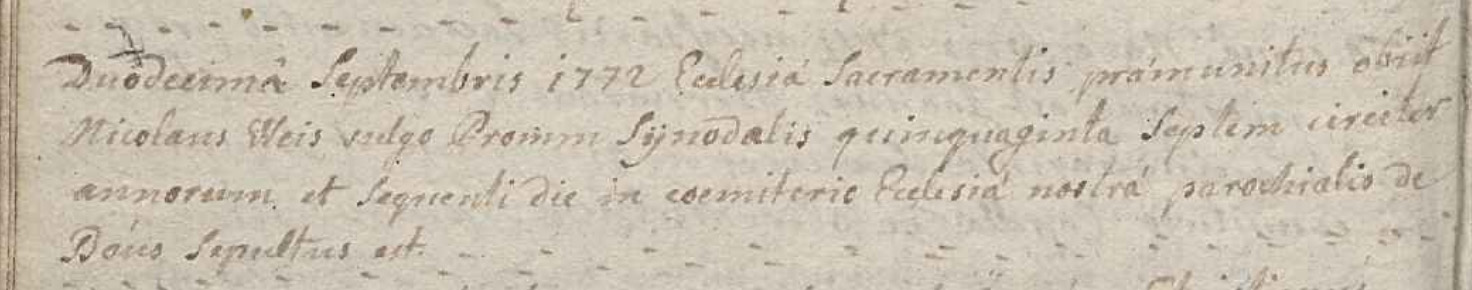 Duodecimâ Septembris 1772 Ecclesiá Sacramentis prámunitus obiit
Nicolaus Weis vulgo Promm Synodalis quinquaginta septem circiter
annorum et sequenti die in coemiterio Ecclesiá nostrá parochialis de
sepultus est.